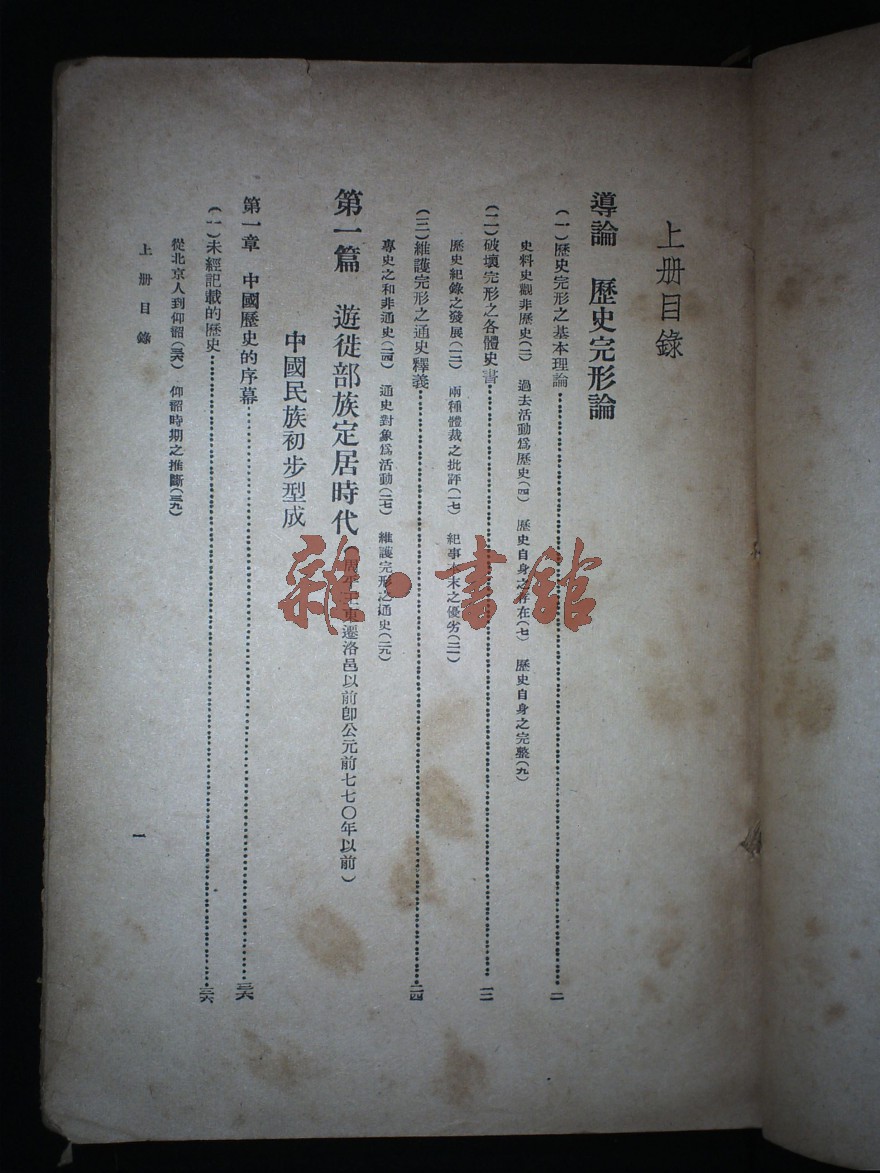 上册目錄
導論　歷史完形論
(一)歷史完形之基本理論……二
史料史觀非歷史(二)　過去活動爲歷史(四)　歷史自身之存在(七)　歷史自身之完整(九)
(二)破壞完形之各體史書……一二
歷史紀錄之發展(一二)　兩種體裁之批評(一七)　紀事本末之優劣(二一)
(三)維護完形之通史釋義……二四
專史之和非通史(二四)　通史對象爲活動(二七)　維護完形之通史(二九)
第一篇　遊徙部族定居時代(周平王東遷洛邑以前卽公元前七七〇年以前)
中國民族初步型成
第一章　中國歷史的序幕……三六
(一)未經記載的歷史……三六
從北京人到仰韶(三六)　仰韶時期之推斷(三九)
上册目錄
一
雜·書館